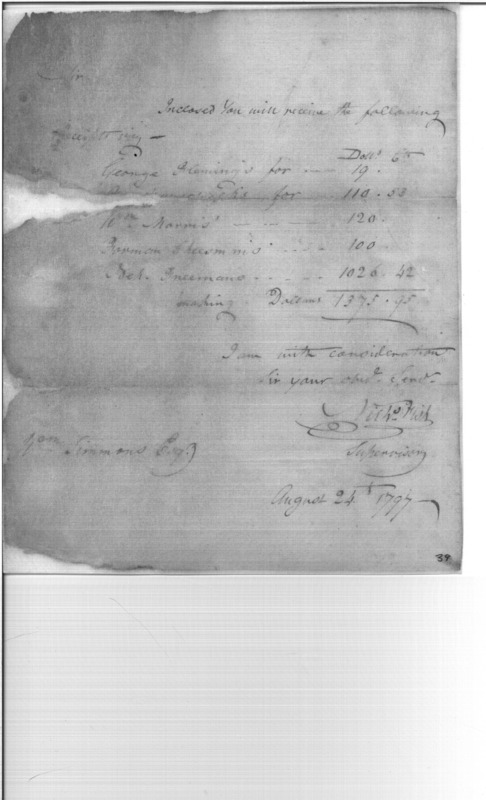 Sir
Inclosed You will receive the following
receipts viz —
Dolls. Cts
George Fleming's for — 19.
for — 110.53
Wm. Morris' — — — 120.
100.
Not. Freemans . . . . 1026.42
making Dollars 1375.95
I am with consideration
Sir your obdt. Servt.
Nichs. Fish
Supervisor
Wm Simmons Esq.
August 24th 1797
39